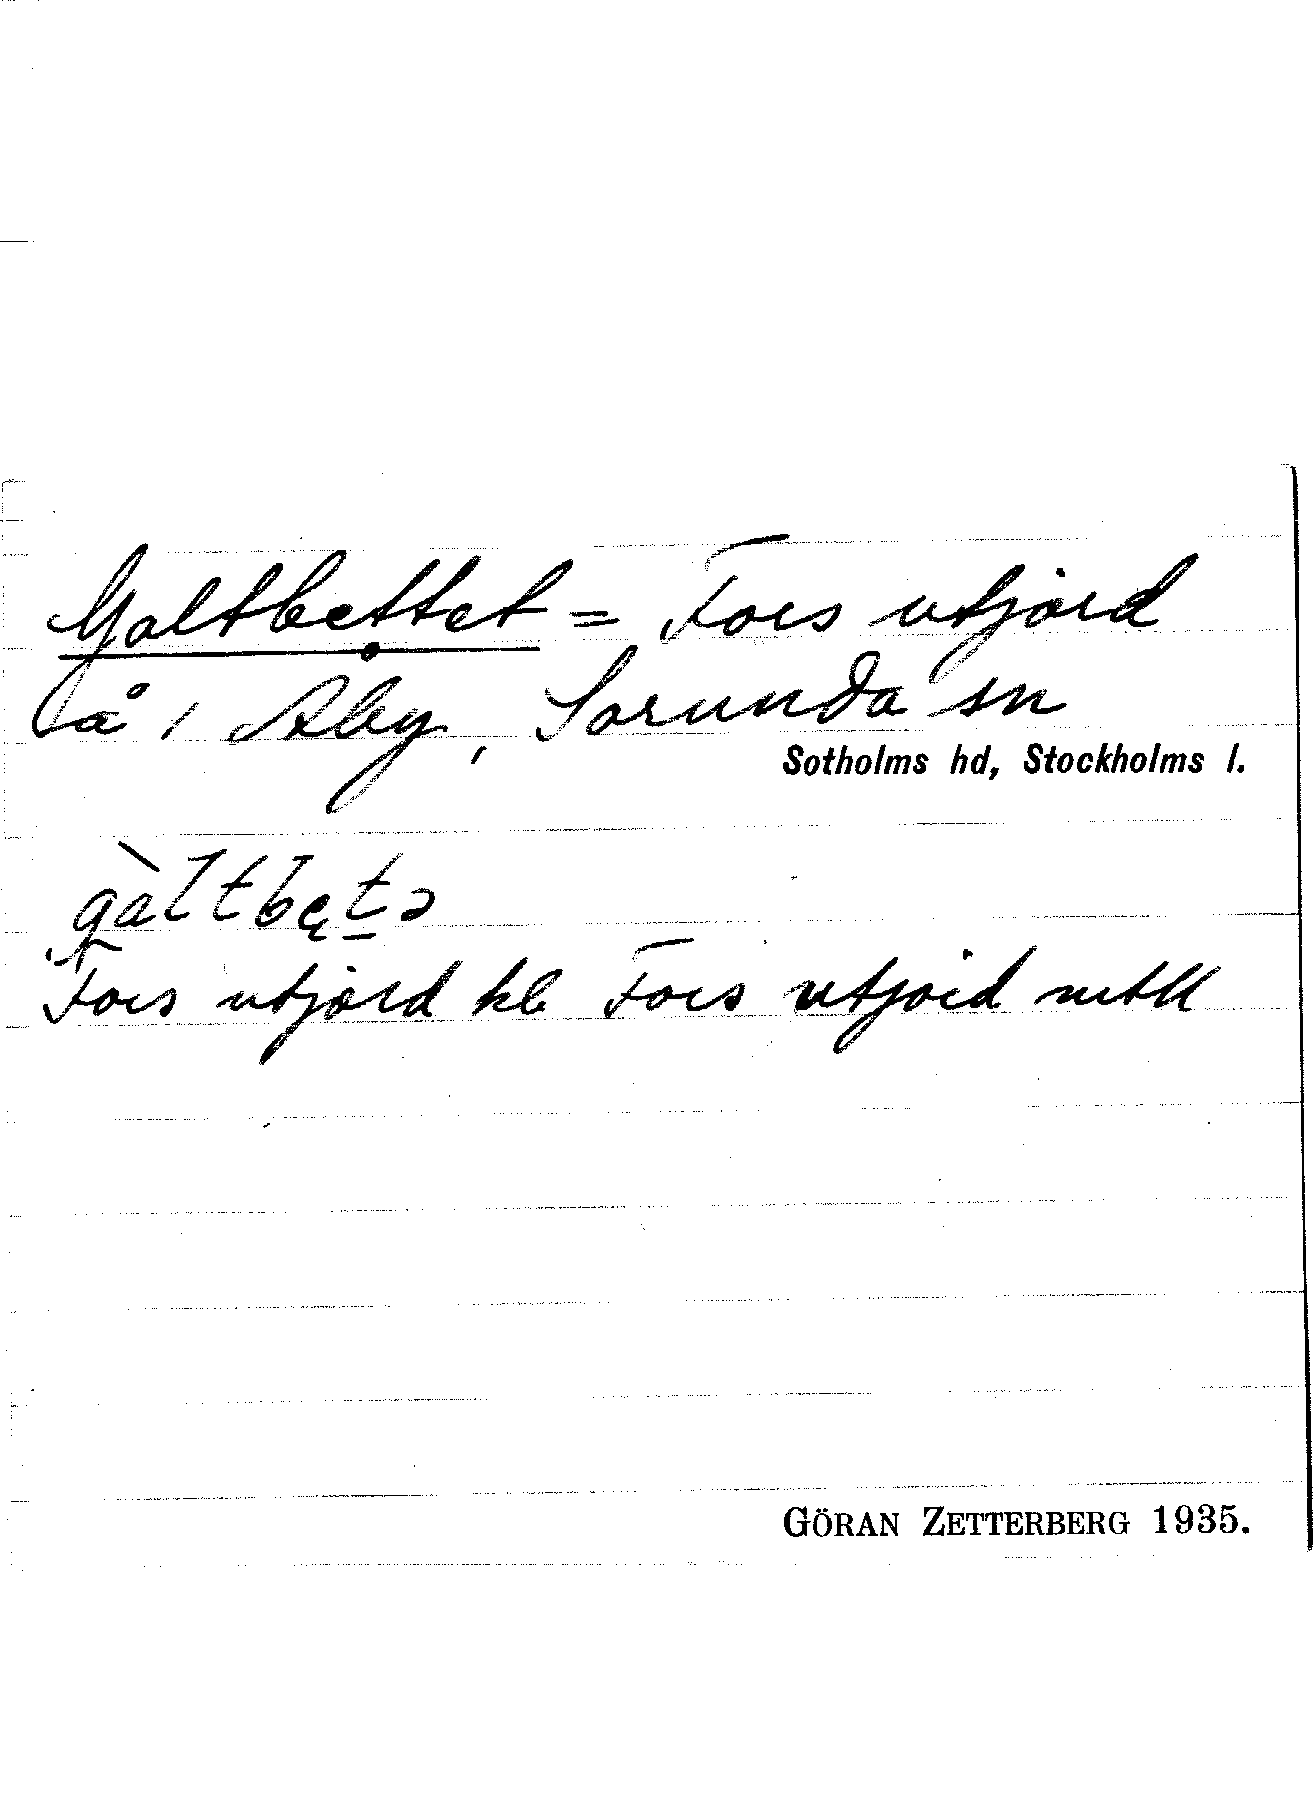 Galtbettet = Fors utjord
å i Åby, Sorunda sn
Sotholms hd, Stockholms l.
gàltbętə
Fors utjord kb Fors utjord mtll
GÖRAN ZETTERBERG 1935.